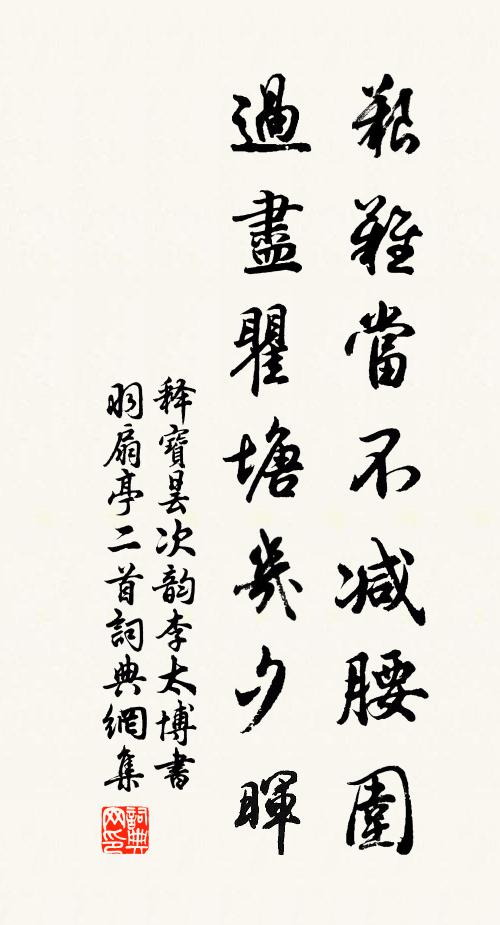 艱難當不减腰圍
過盡瞿塘幾夕暉
释寶曇次韵李太博書
羽扇亭二首詞典網集
詞典网印